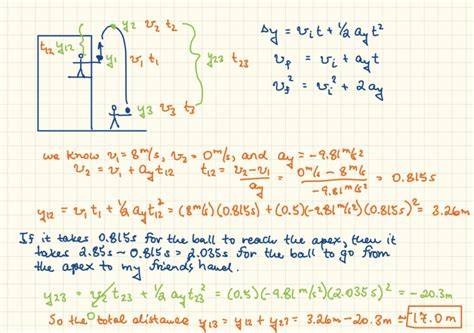 y₂ v₂ t₂
t₁₂ y₁₂
y₁ v₁ t₁
y₂₃ t₂₃
y₃ v₃ t₃
Δy = vᵢt + ½ a_y t²
v_f = vᵢ + a_y t
v_f² = vᵢ² + 2a y
we know v₁ = 8 m/s, v₂ = 0 m/s, and a_y = -9.81 m/s²
v₂ = v₁ + a_y t₁₂ t₁₂ = (v₂ - v₁)/a_y = (0 m/s - 8 m/s)/(-9.81 m/s²) = 0.815s
y₁₂ = v₁ t₁ + ½ a_y t₁₂² = (8 m/s)(0.815s) + (0.5)(-9.81 m/s²)(0.815s)² = 3.26m
If it takes 0.815s for the ball to reach the apex, then it
takes 2.85s - 0.815s = 2.035s for the ball to go from
the apex to my friends hand.
y₂₃ = v₂ t₂₃ + ½ a y t₂₃² = (0.5)(-9.81 m/s²)(2.035s)² = -20.3m
0
So the total distance y₁₃ = y₁₂ + y₂₃ = 3.26m - 20.3m = -17.0m